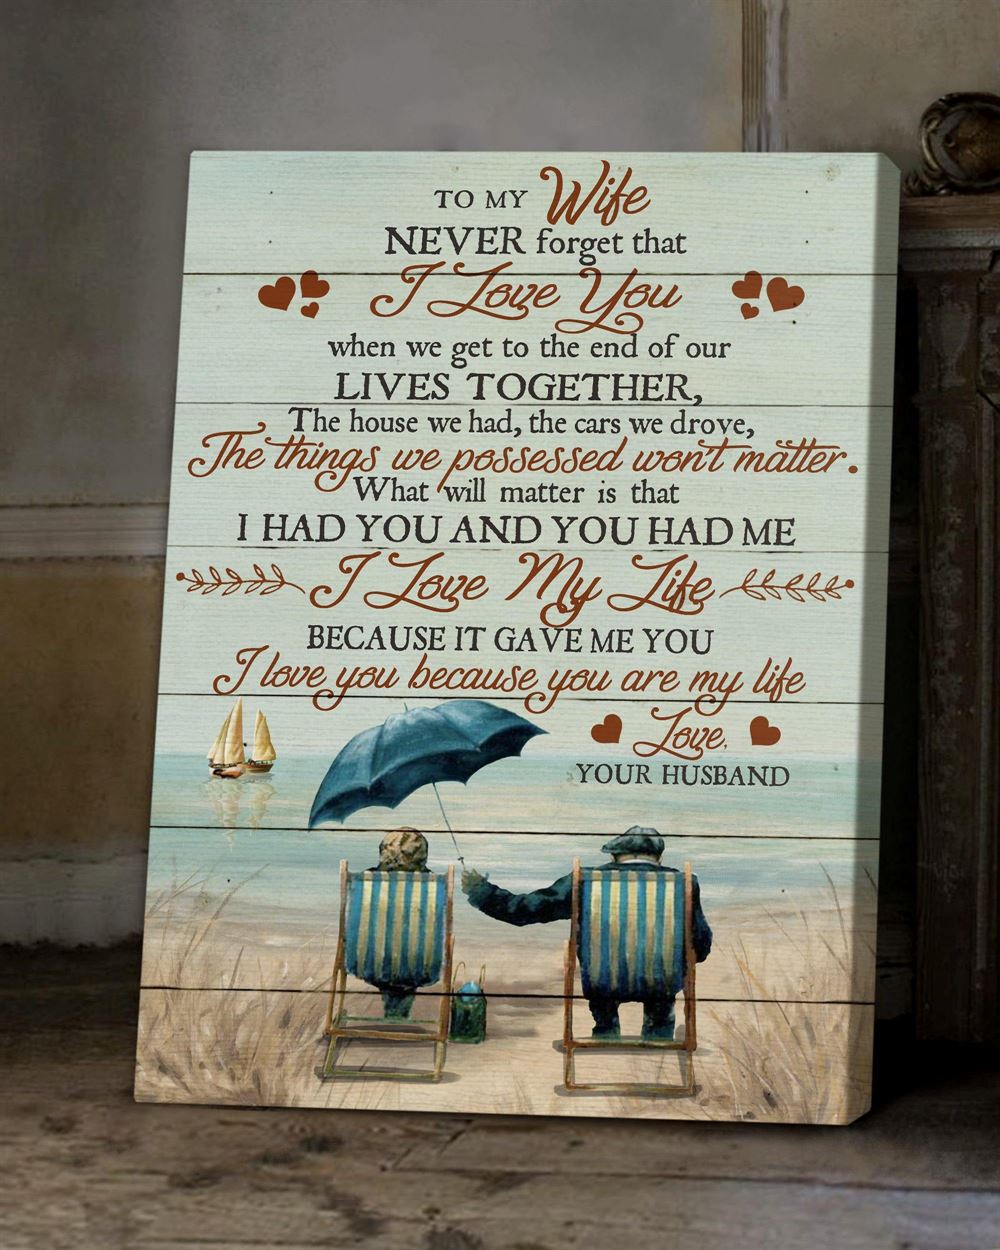 TO MY Wife
NEVER forget that
I Love You
when we get to the end of our
LIVES TOGETHER,
The house we had, the cars we drove,
The things we possessed won't matter.
What will matter is that
I HAD YOU AND YOU HAD ME
I Love My Life
BECAUSE IT GAVE ME YOU
I love you because you are my life
Love,
YOUR HUSBAND